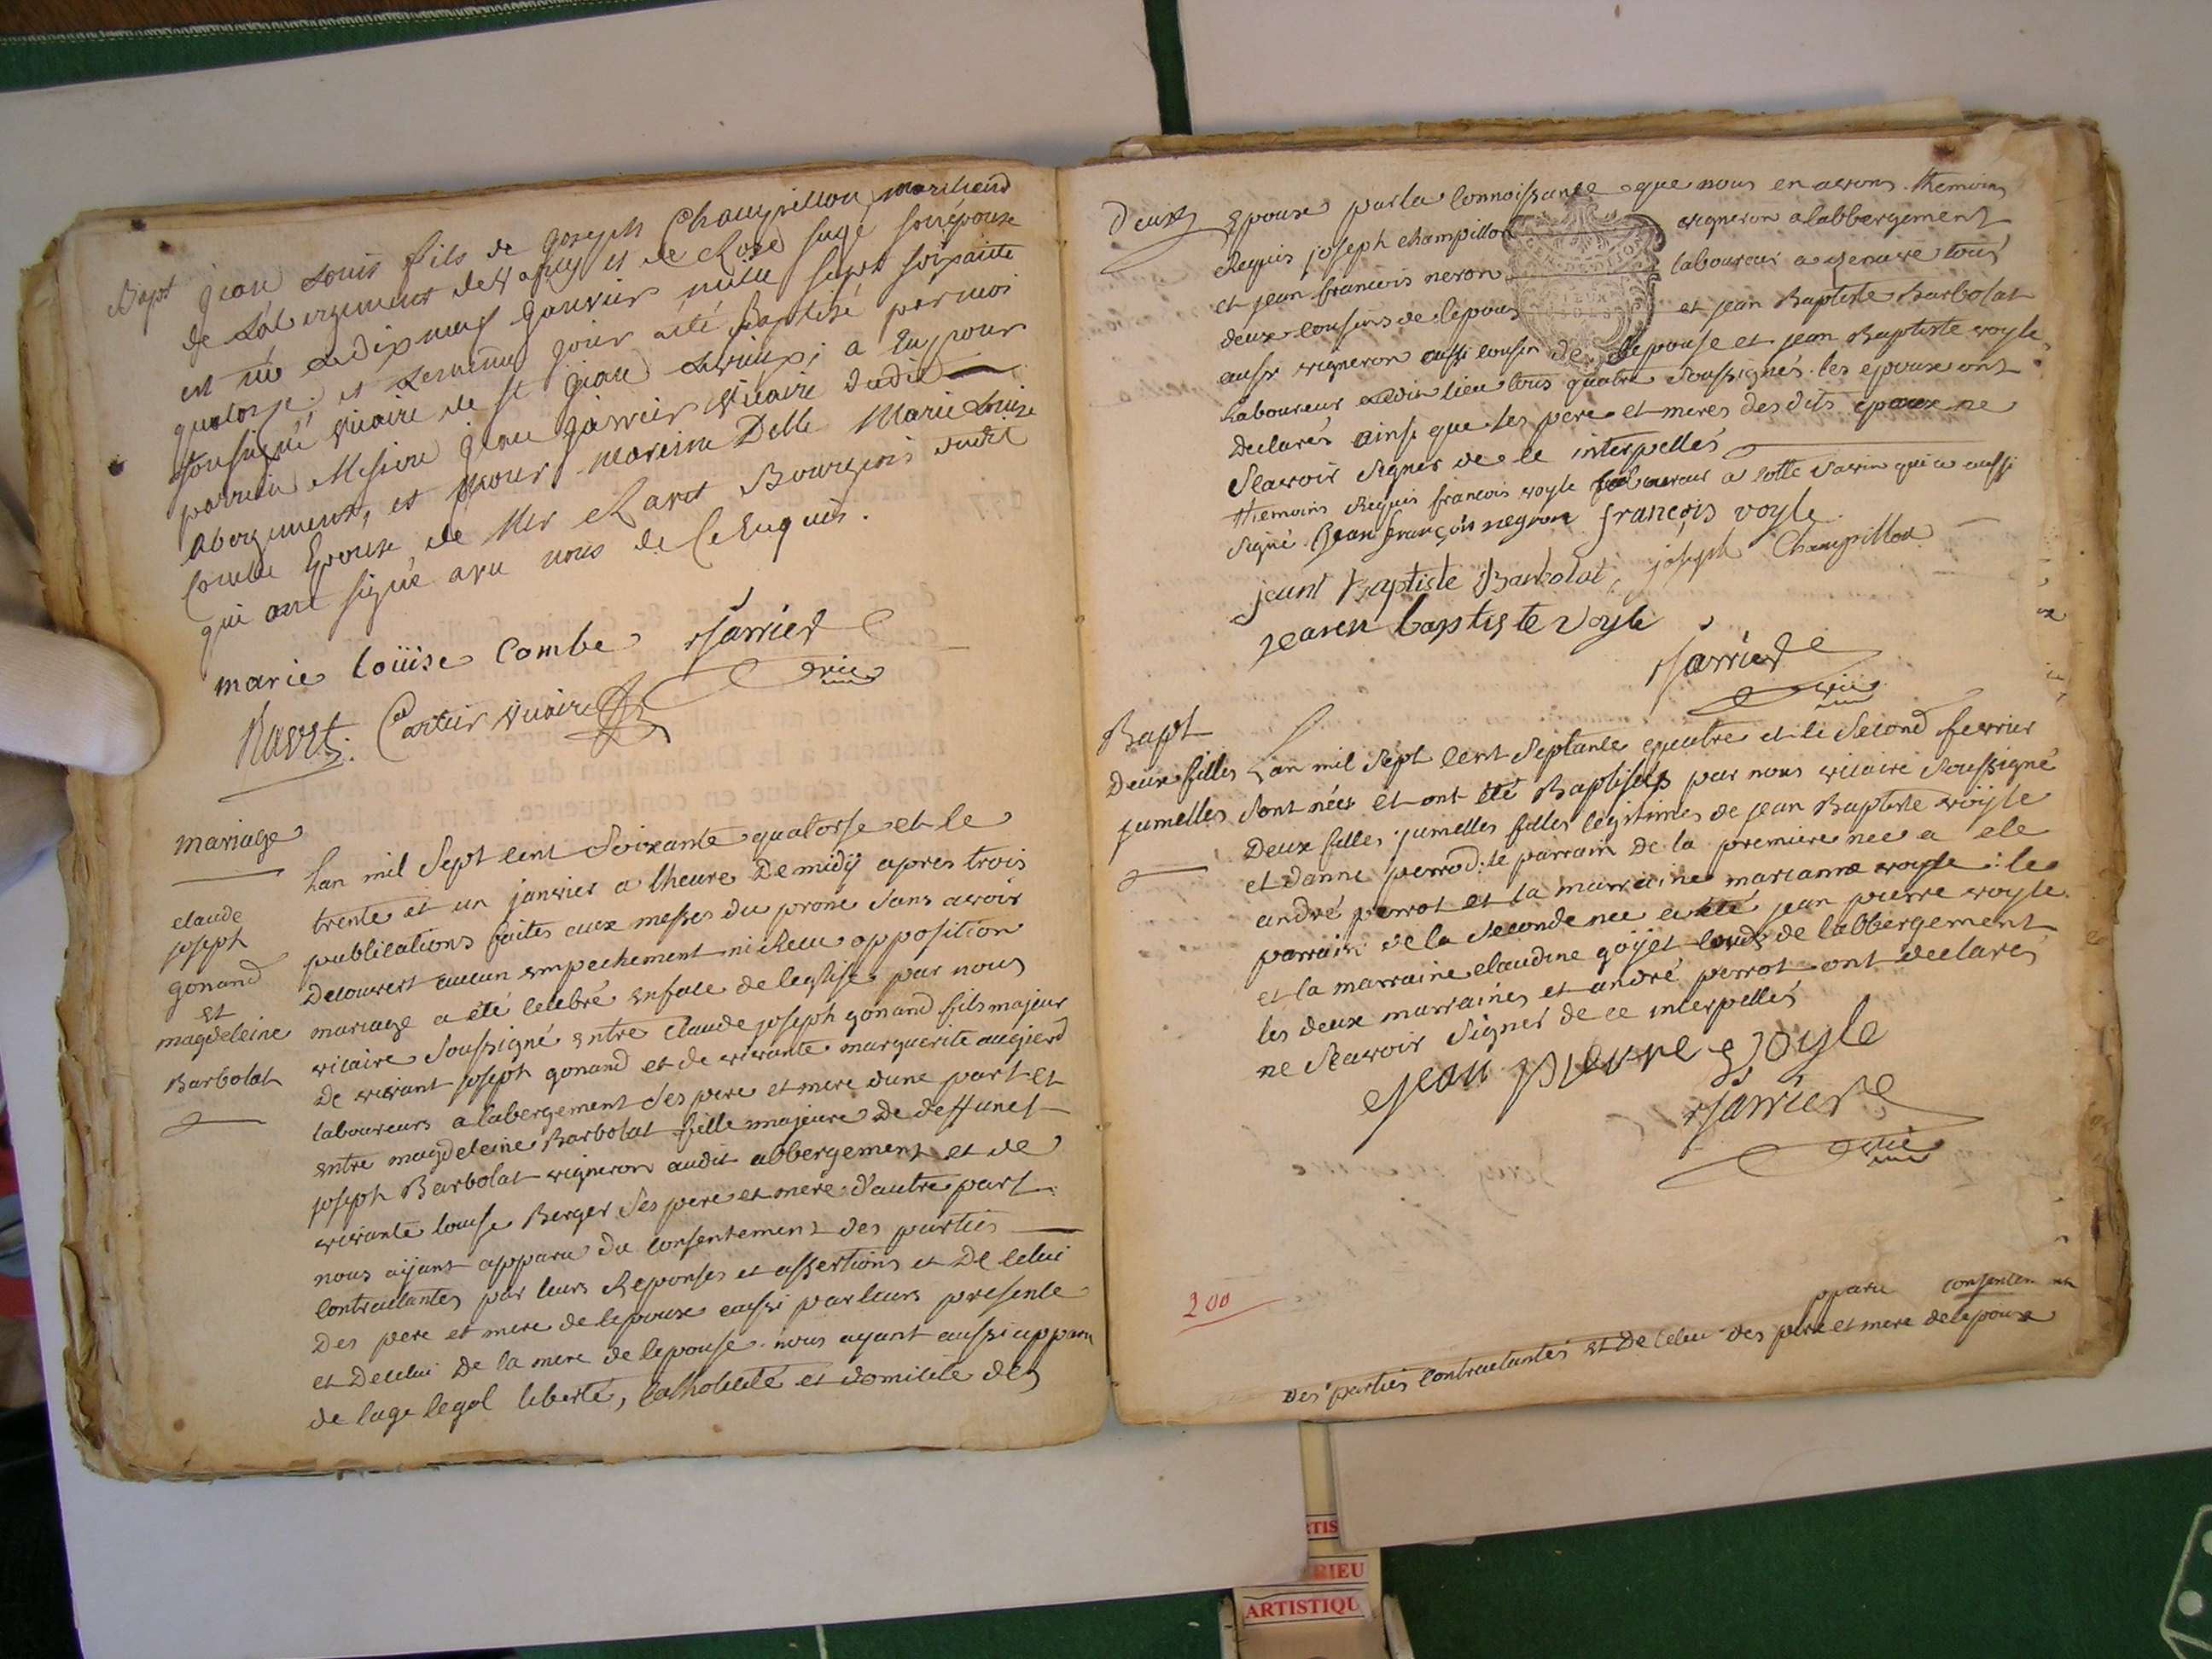 Bapt jean Louis fils de joseph Champillon marchand
de Labergement de Varey et de Roze sage son épouse
est né le dix neuf janvier mille sept soixante
quatorze. et le même jour a été Baptisé par moi
soussigné vicaire de st jean le vieux; a Eu pour
parrain Messire jean jarrier vicaire dudit
abergement, et pour mareine Delle Marie Louise
Combe Epouse de Mer Ravet Bourgeois dudit
qui ont signé avec nous de ce Enquis.
marie loüise Combe jarrier
vic
Ravet. Cartier vicaire
mariage
claude
joseph
gonand
et
magdeleine
Barbolat
Lan mil sept cent soixante quatorse et le
trente et un janvier a lheure de midÿ apres trois
publications faites aux messes du prone sans avoir
decouvert aucun empechement ni Recu opposition
mariage a été celebré en face de leglise par nous
vicaire soussigné entre claude joseph gonand fils majeur
de vivant joseph gonand et de vivante marguerite augierd
laboureurs a labergement ses pere et mere dune part et
entre magdeleine Barbolat fille majeure de deffunct
joseph Barbolat vigneron audit abbergement et de
vivante louise Berger ses pere et mere d'autre part.
nous aÿant apparu du consentement des parties
contractantes par leurs Reponses et assertions et de celui
des pere et mere de lepoux aussi par leurs presence
et de celui de la mere de lepouse. nous ayant aussi apparu
de lage legal liberté, catholicité et domicile des
deux Epoux par la connoissance que nous en avons. themoins
Requis joseph champillon vigneron a labbergement
et jean francois neron laboureur a tous
deux cousins de lepoux et jean Baptiste Barbolat
aussi vigneron aussi cousin de lepouse et jean Baptiste voyle
Laboureur dudit lieu tous quatre soussignés. les epoux ont
declarés ainsi que les pere et meres desdits epoux ne
scavoir signer de ce interpellés
themoins Requis francois voyle laboureur a cotte savin qui a aussi
signé. Jean françois negron françois voyle
jeant Baptiste Barbolat, joseph Champillon
jean baptiste voyle
jarrier
vic
Bapt
Deux filles
jumelles
Lan mil sept cent septante quatre et le second fevrier
sont nées et ont été Baptisées par nous vicaire soussigné
deux filles jumelles filles legitimes de jean Baptiste voÿle
et danne perrod: le parrain de la premiere née a ete
andré perrot et la marraine marianne voyle: le
parrain de la seconde née a été jean pierre voyle
et la marraine claudine goÿet tous de labbergement
les deux marraines et andré perrot ont declarés
ne scavoir signer de ce interpellés
jean pierre voyle
jarrier
vic
200
pparu consentem nt
des parties contractantes et de celui des pere et mere de lepoux
RTIS
RIEU
ARTISTIQU